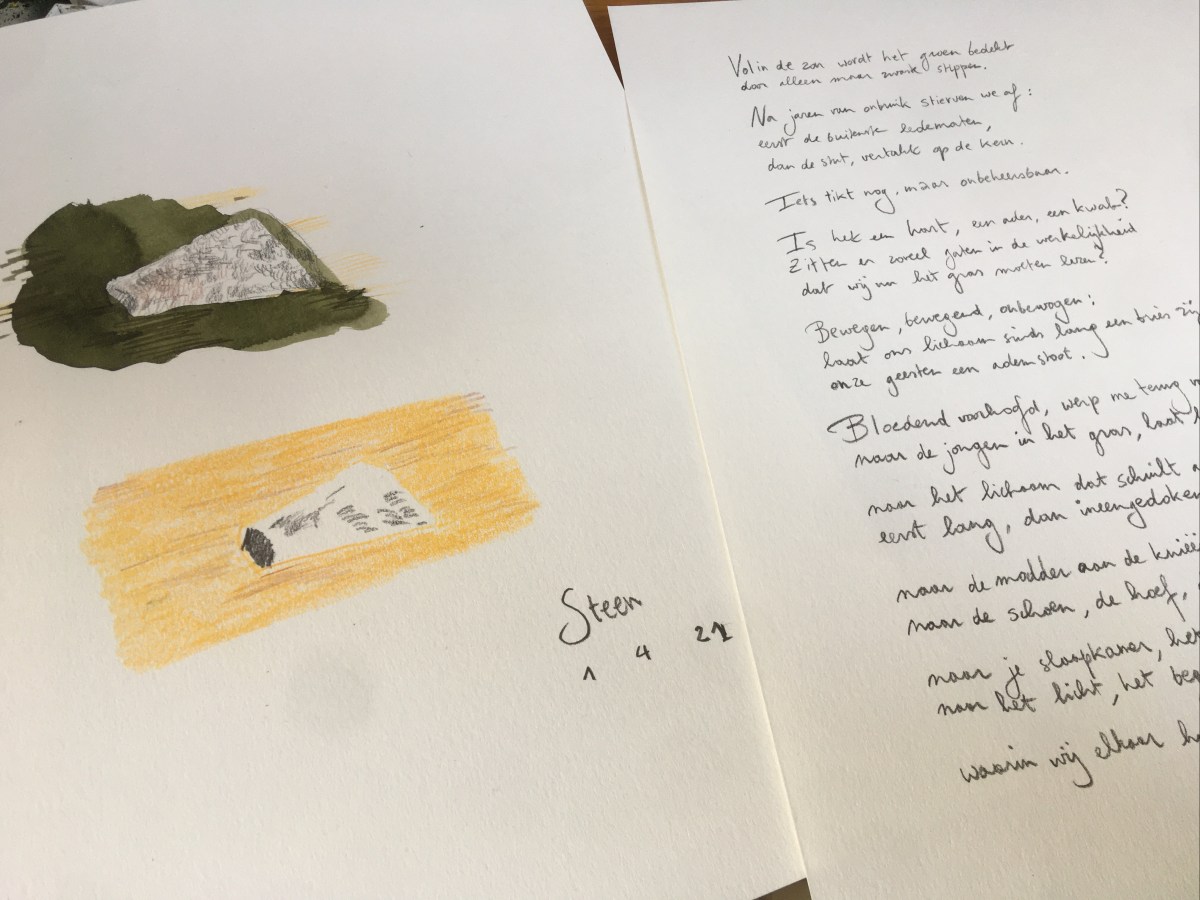 Steen
1 4 21
Vol in de zon wordt het groen bedekt
door alleen maar zwarte stippen.
Na jaren van onbruik stierven we af:
eerst de buitenste ledematen,
dan de stut, vertakt op de kern.
Iets tikt nog, maar onbeheersbaar.
Is het een hart, een ader, een kwab?
Zitten er zoveel gaten in de werkelijkheid
dat wij nu het gras moeten lezen?
Bewegen, bewegend, onbewogen:
laat ons lichaam sinds lang een bries zij
onze geesten een ademstoot.
Bloedend voorhoofd, werp me terug
naar de jongen in het gras, laat
naar het lichaam dat schuilt
eerst lang, dan ineengedoken
naar de modder aan de knieë
naar de schoen, de hoef,
naar je slaapkamer, het
naar het licht, het beg
waarin wij elkaar h